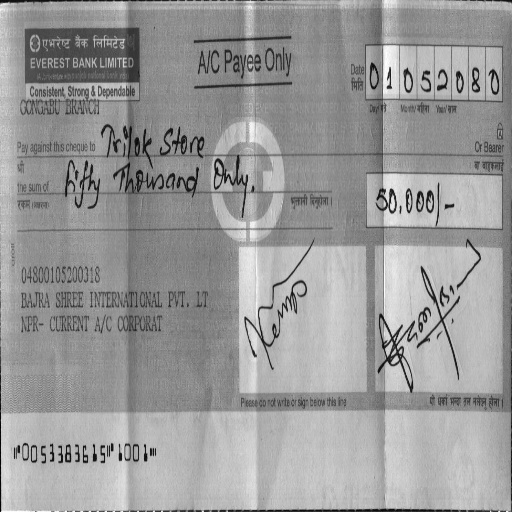 एभरेष्ट बैंक लिमिटेड
EVEREST BANK LIMITED
Consistent, Strong & Dependable
GONGABU BRANCH
A/C Payee Only
Date 01052080
मिति
Day/ Month/महिना Year/साल
Pay against this cheque to Trilok Store Or Bearer
श्री वा वाहकलाई
the sum of Fifty Thousand Only. 50,000/-
04800105200318
BAJRA SHREE INTERNATIONAL PVT. LT
NPR- CURRENT A/C CORPORAT
Please do not write or sign below this line
"0053383615" 1001"